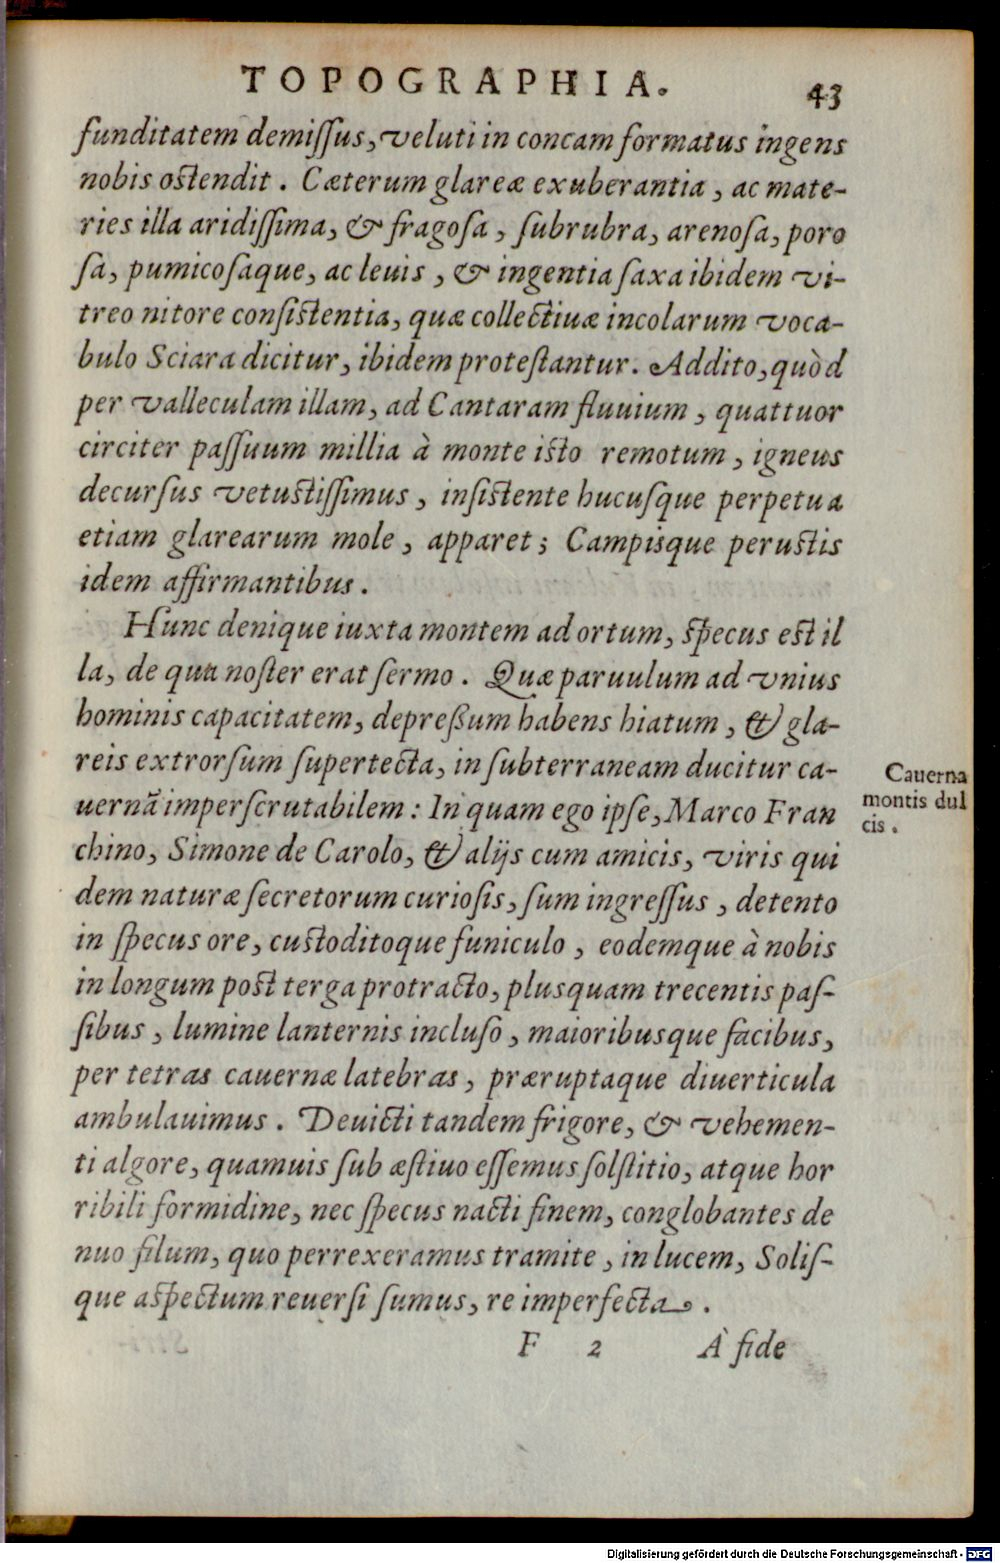 TOPOGRAPHIA. 43
funditatem demiſſus, veluti in concam formatus ingens
nobis oſtendit. Cæterum glareæ exuberantia, ac mate-
ries illa aridiſſima, & fragoſa, ſubrubra, arenoſa, poro
ſa, pumicoſaque, ac leuis, & ingentia ſaxa ibidem vi-
treo nitore conſiſtentia, quæ collectiuæ incolarum voca-
bulo Sciara dicitur, ibidem proteſtantur. Addito, quòd
per valleculam illam, ad Cantaram fluuium, quattuor
circiter paſſuum millia à monte iſto remotum, igneus
decurſus vetuſtiſſimus, inſiſtente hucuſque perpetua
etiam glarearum mole, apparet; Campiſque peruſtis
idem affirmantibus.
Hunc denique iuxta montem ad ortum, ſpecus eſt il
la, de qua noſter erat ſermo. Quæ paruulum ad vnius
hominis capacitatem, depreßum habens hiatum, & gla-
reis extrorſum ſupertecta, in ſubterraneam ducitur ca-
uernã imperſcrutabilem: In quam ego ipſe, Marco Fran
chino, Simone de Carolo, & alijs cum amicis, viris qui
dem naturæ ſecretorum curioſis, ſum ingreſſus, detento
in ſpecus ore, cuſtoditoque funiculo, eodemque à nobis
in longum poſt terga protracto, plusquam trecentis paſ-
ſibus, lumine lanternis incluſo, maioribusque facibus,
per tetras cauernæ latebras, præruptaque diuerticula
ambulauimus. Deuicti tandem frigore, & vehemen-
ti algore, quamuis ſub æſtiuo eſſemus ſolſtitio, atque hor
ribili formidine, nec ſpecus nacti finem, conglobantes de
nuo filum, quo perrexeramus tramite, in lucem, Soliſ-
que aſpectum reuerſi ſumus, re imperfecta.
F 2 À fide
Cauerna
montis dul
cis.
Digitalisierung gefördert durch die Deutsche Forschungsgemeinschaft - DFG